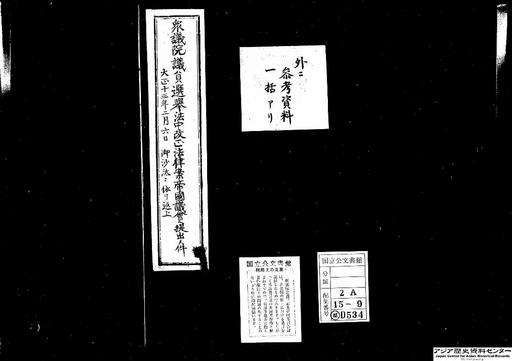 衆議院議員選挙法中改正法律案帝國議會ヘ提出ノ件
大正十三年二月六日 御沙汰ニ依リ返上
外ニ
参考資料
一括アリ
国立公文書館
利用上の注意
国立公文書館
分類
配架番号
2A
15-9
D534
アジア歴史資料センター
Japan Center for Asian Historical Records